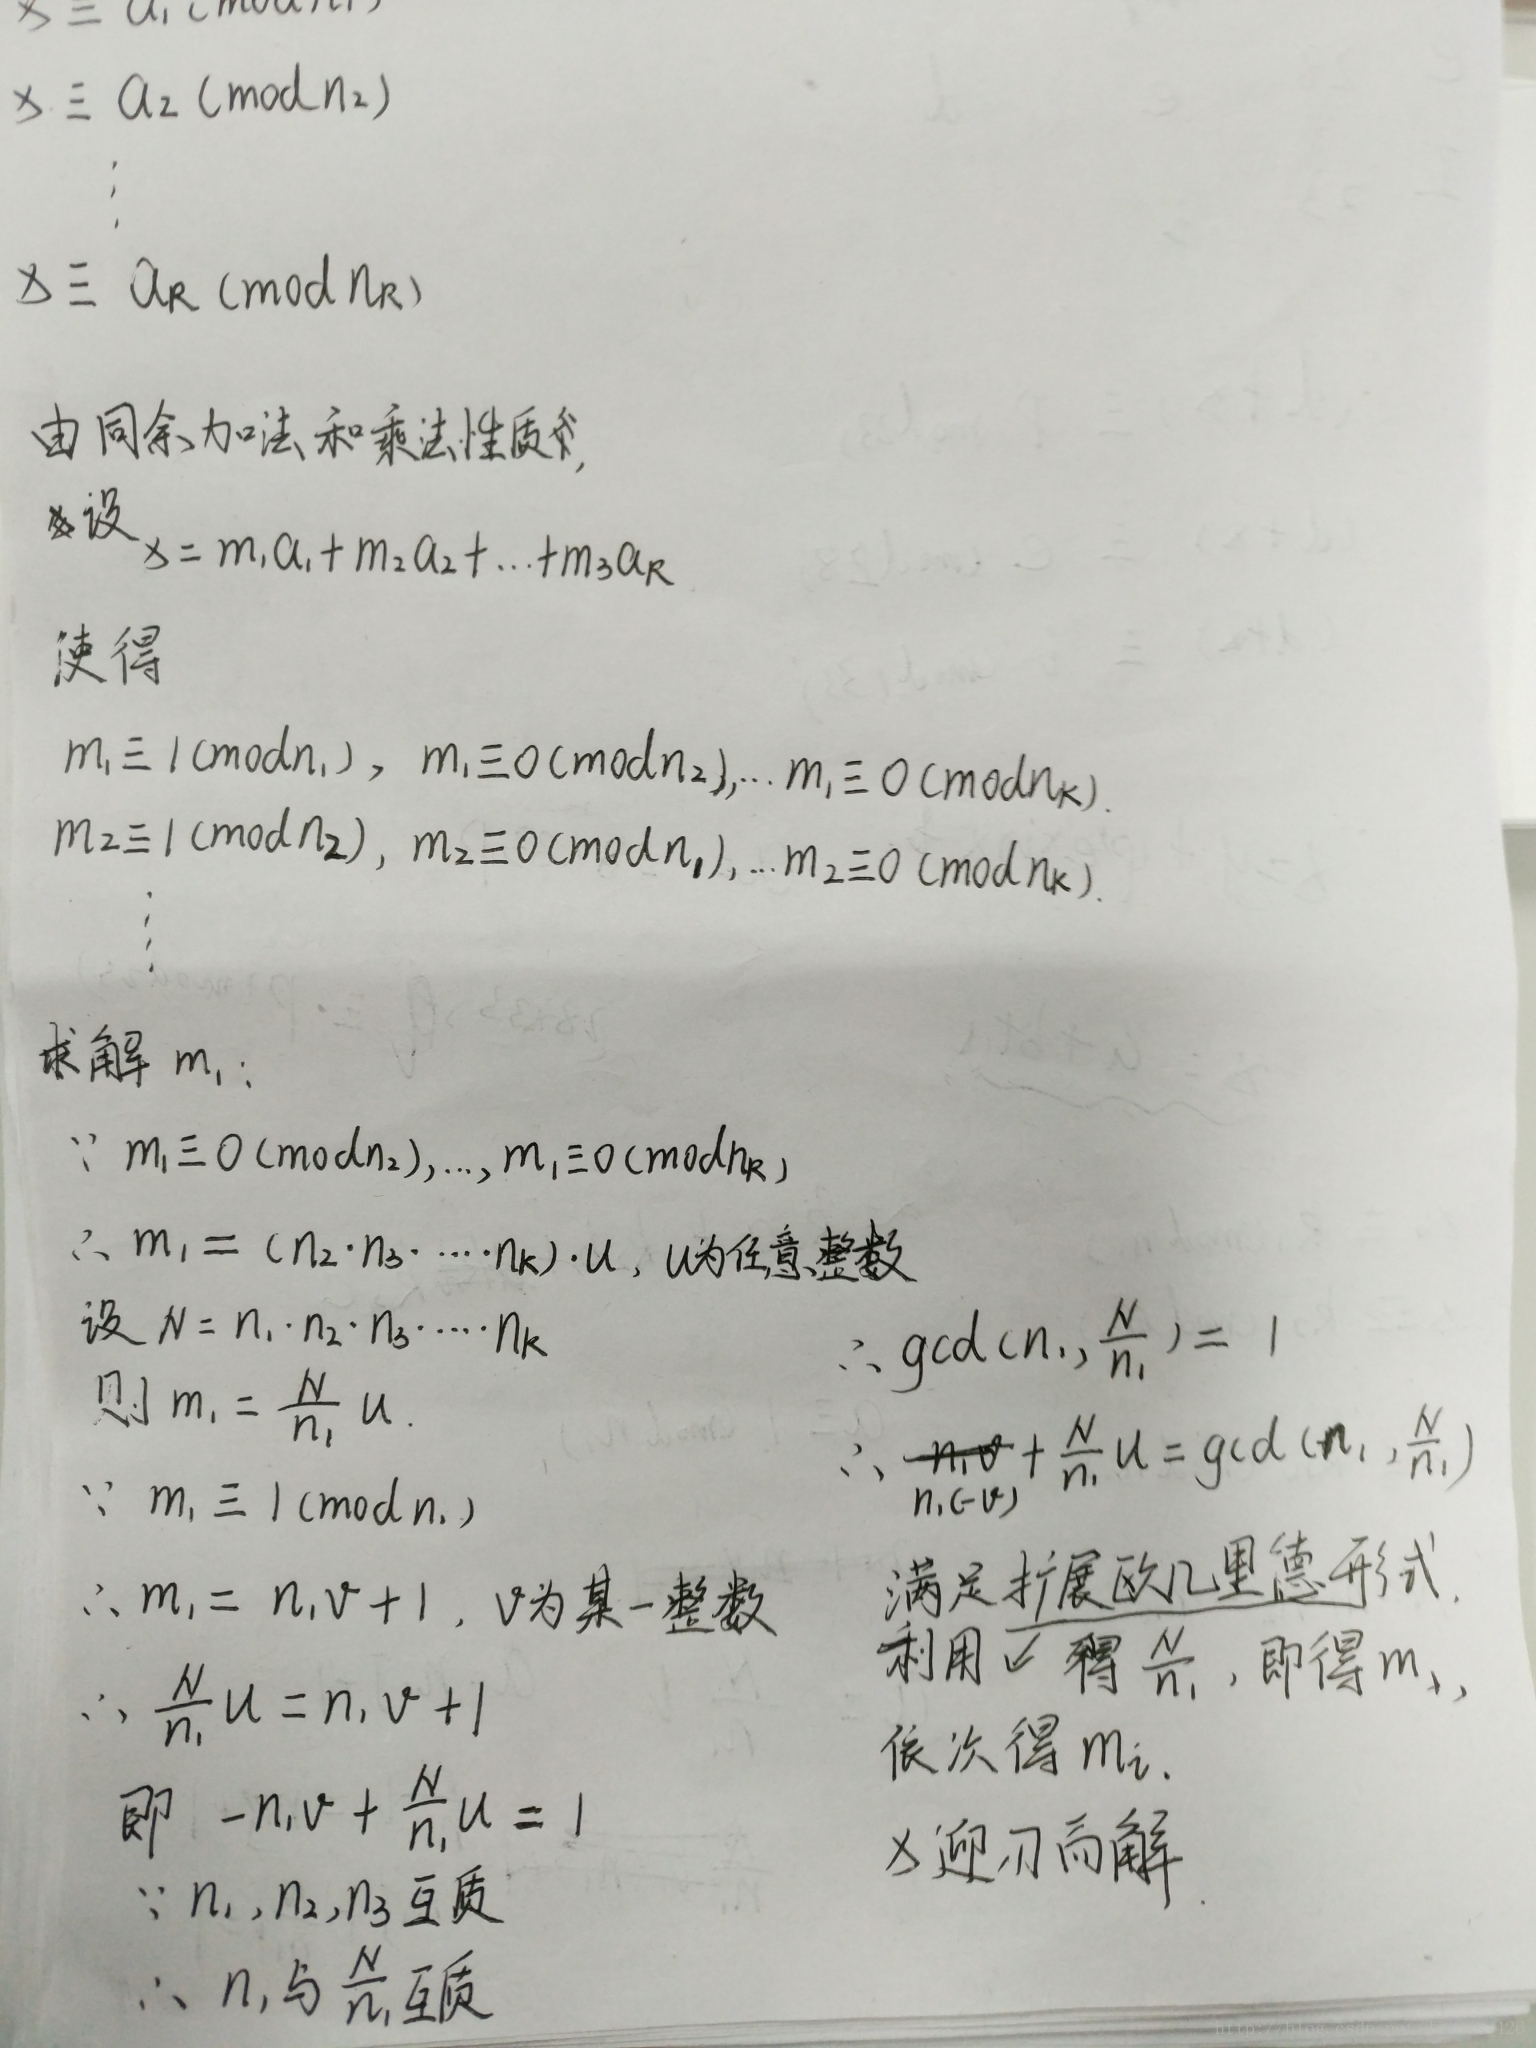 x ≡ a₁ (mod n₁)
x ≡ a₂ (mod n₂)
⋮
x ≡ aₖ (mod nₖ)
由同余加法和乘法性质,
设 x = m₁a₁ + m₂a₂ + … + m₃aₖ
使得
m₁ ≡ 1 (mod n₁), m₁ ≡ 0 (mod n₂), … m₁ ≡ 0 (mod nₖ).
m₂ ≡ 1 (mod n₂), m₂ ≡ 0 (mod n₁), … m₂ ≡ 0 (mod nₖ).
⋮
求解 m₁:
∵ m₁ ≡ 0 (mod n₂), …, m₁ ≡ 0 (mod nₖ)
∴ m₁ = (n₂·n₃·…·nₖ)·u, u为任意整数
设 N = n₁·n₂·n₃·…·nₖ
则 m₁ = N/n₁ u.
∵ m₁ ≡ 1 (mod n₁)
∴ m₁ = n₁v + 1, v为某一整数
∴ N/n₁ u = n₁v + 1
即 -n₁v + N/n₁ u = 1
∵ n₁, n₂, n₃ 互质
∴ n₁与 N/n₁ 互质
∴ gcd(n₁, N/n₁) = 1
∴ n₁v + N/n₁ u = gcd(n₁, N/n₁)
n₁(-v)
满足扩展欧几里德形式.
利用↙得 N/n₁, 即得 m₁,
依次得 mᵢ.
x迎刃而解.